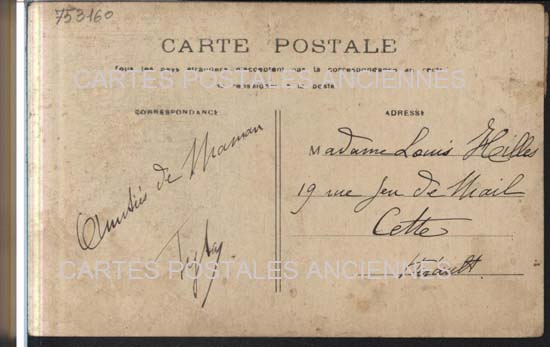 753160
CARTE POSTALE
Tous les pays étrangers n'acceptent pas la correspondance au recto
CARTES POSTALES ANCIENNES
se renseigner à la poste
CORRESPONDANCE
Amitiés de Maman
ADRESSE
Madame Louis Hilles
19 rue Jeu de Mail
Cette
Hérault
CARTES POSTALES ANCIENNES